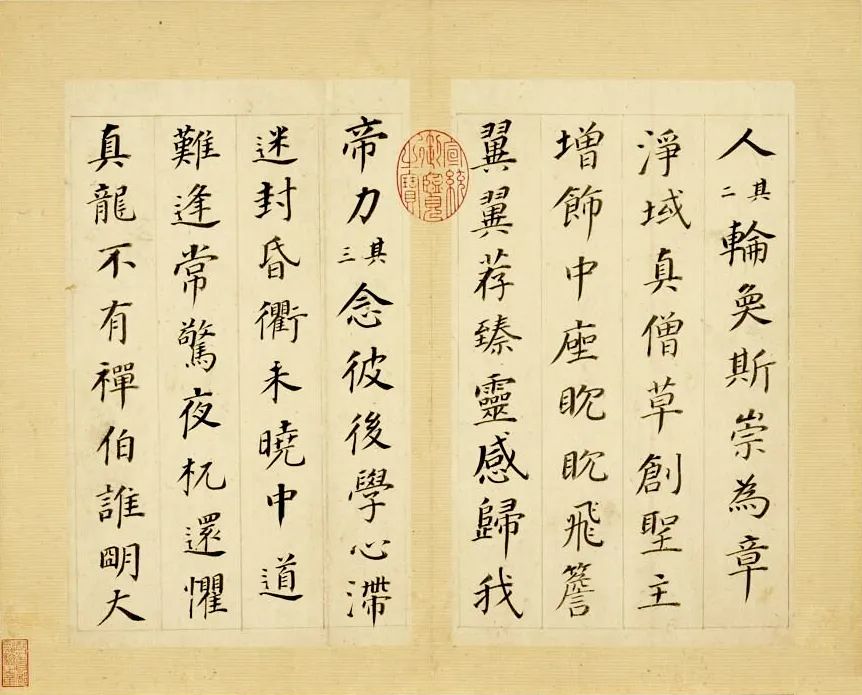 人其二輪奐斯崇為章
淨域真僧草創聖主
增飾中座眈眈飛簷
翼翼荐臻靈感歸我
宣統御覽之寶
帝力其三念彼後學心滯
迷封昏衢未曉中道
難逢常驚夜杌還懼
真龍不有禪伯誰明大